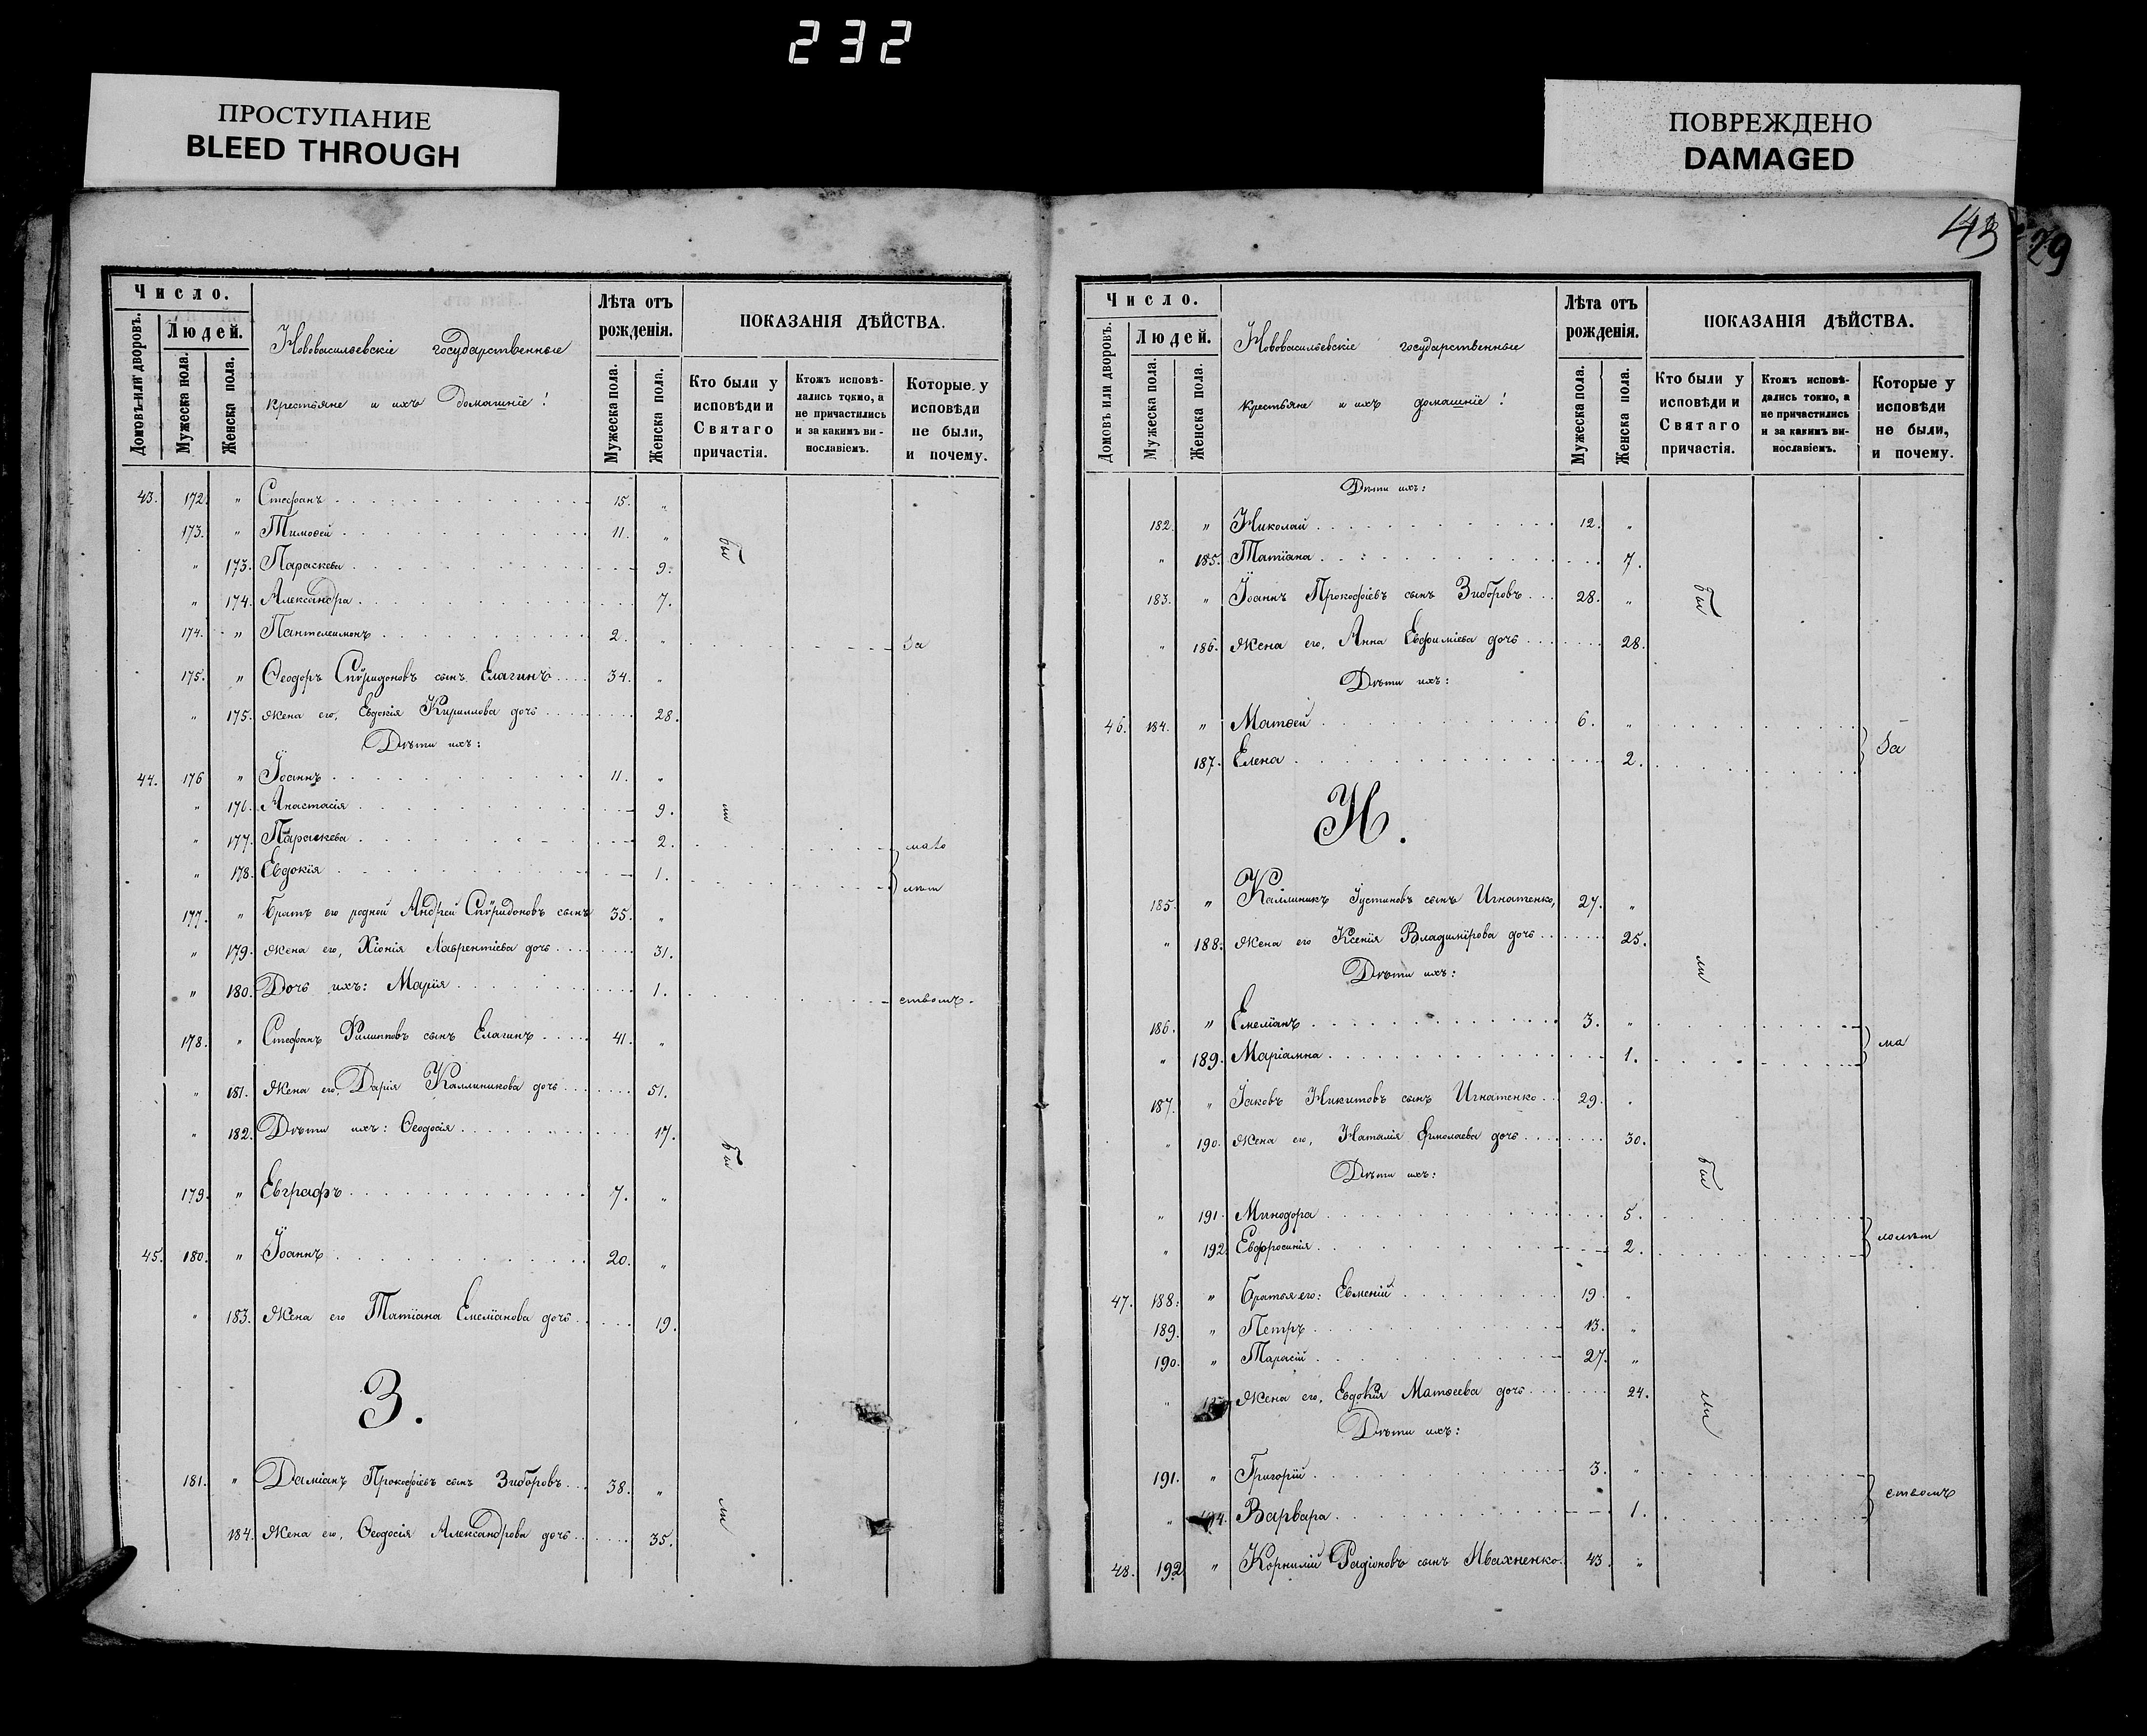 232
ПРОСТУПАНИЕ
BLEED THROUGH
ПОВРЕЖДЕНО
DAMAGED
Число.
Домовъ или дворовъ.
Людей.
Мужеска пола.
Женска пола.
Нововасильевскіе государственные
крестьяне и ихъ домашніе!
Лѣта отъ
рожденія.
Мужеска пола.
Женска пола.
ПОКАЗАНІЯ ДѢЙСТВА.
Кто были у
исповѣди и
Святаго
причастія.
Ктожъ исповѣ-
дались токмо, а
не причастились
и за какимъ ви-
нославіемъ.
Которые у
исповѣди
не были,
и почему.
43. 172. " Стефанъ 15. "
173. " Тимоѳей 11. "
бы
" 173. Параскева 9.
" 174. Александра 7.
174. " Пантелеимонъ 2. " За
175. " Ѳеодоръ Спѵридоновъ сынъ Елагинъ 34. "
" 175. Жена его, Евдокія Кириллова дочь 28.
Дѣти ихъ:
44. 176 " Іоаннъ 11. "
" 176. Анастасія 9.
" 177. Параскева 2. мало
" 178. Евдокія 1. лѣт
177. " Братъ его родной Андрей Спѵридоновъ сынъ 35. "
" 179. Жена его, Хіонія Лаврентіева дочь 31.
" 180. Дочь ихъ: Марія 1. ствомъ.
178. " Стефанъ Филипповъ сынъ Елагинъ 41. "
" 181. Жена его, Дарія Каллиникова дочь 51.
" 182. Дѣти ихъ: Ѳеодосія 17.
бы
179. " Евграфъ 7. "
45. 180. " Іоаннъ 20. "
" 183. Жена его Татіана Емеліанова дочь 19.
З.
181. " Даміанъ Прокофіевъ сынъ Зиборовъ 38. "
ли
184. Жена его, Ѳеодосія Александрова дочь 35.
143
29
Число.
Домовъ или дворовъ.
Людей.
Мужеска пола.
Женска пола.
Нововасильевскіе государственные
крестьяне и ихъ домашніе!
Лѣта отъ
рожденія.
Мужеска пола.
Женска пола.
ПОКАЗАНІЯ ДѢЙСТВА.
Кто были у
исповѣди и
Святаго
причастія.
Ктожъ исповѣ-
дались токмо, а
не причастились
и за какимъ ви-
нославіемъ.
Которые у
исповѣди
не были,
и почему.
Дѣти ихъ:
182. " Николай 12. "
" 185. Татіана 7.
183. " Іоаннъ Прокофіевъ сынъ Зиборовъ 28. "
бы
" 186. Жена его, Анна Евфиміева дочь 28.
Дѣти ихъ:
46. 184. " Матѳей 6. "
За
187. Елена 2.
И.
185. " Каллиникъ Іустиновъ сынъ Игнатенко, 27. "
" 188. Жена его Ксенія Владимірова дочь 25.
ли
Дѣти ихъ:
186. " Емеліанъ 3. "
ма
" 189. Маріамна 1.
187. " Іаковъ Никитовъ сынъ Игнатенко 29. "
" 190. Жена его, Наталія Ермолаева дочь 30.
Дѣти ихъ:
бы
" 191. Минодора 5.
лолѣт
" 192. Евфросинія 2.
47. 188. " Братья его: Евмений 19. "
189. " Петръ 13. "
190. " Тарасій 27. "
" Жена его, Евдокія Матѳеева дочь 24.
ли
Дѣти ихъ:
191. " Григорій 3. "
ствомъ
" Варвара 1.
48. 192 " Корнилій Радіоновъ сынъ Ивахненко. 43. "